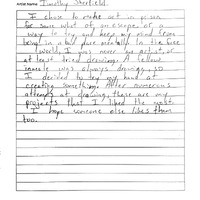 Artist Name Timothy Sherfield.
I chose to make art in prison
for some what of an escape, or a
way to try and keep my mind from
being in a bad place mentally. In the free
world, I was never an artist, or
at least tried drawing. A fellow
inmate was always drawing, so
I decided to try my hand at
creating something. After numerous
attempts at drawing, these are my
projects that I liked the most.
I hope someone else likes them
too.